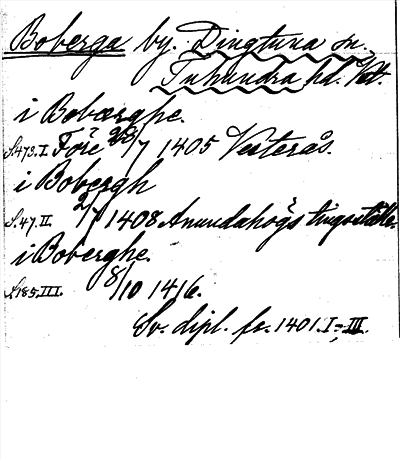 Boberga by. Dingtuna sn.
Tuhundra hd. Vstm.
i Boberghe.
S.473.I. Före 23/7 1405 Vesterås.
i Bobergh
S.47.II. 2/7 1408 Anundahögs tingställe.
i Boberghe.
S.185.III. 8/10 1416.
Sv. dipl. fr. 1401. I-III.